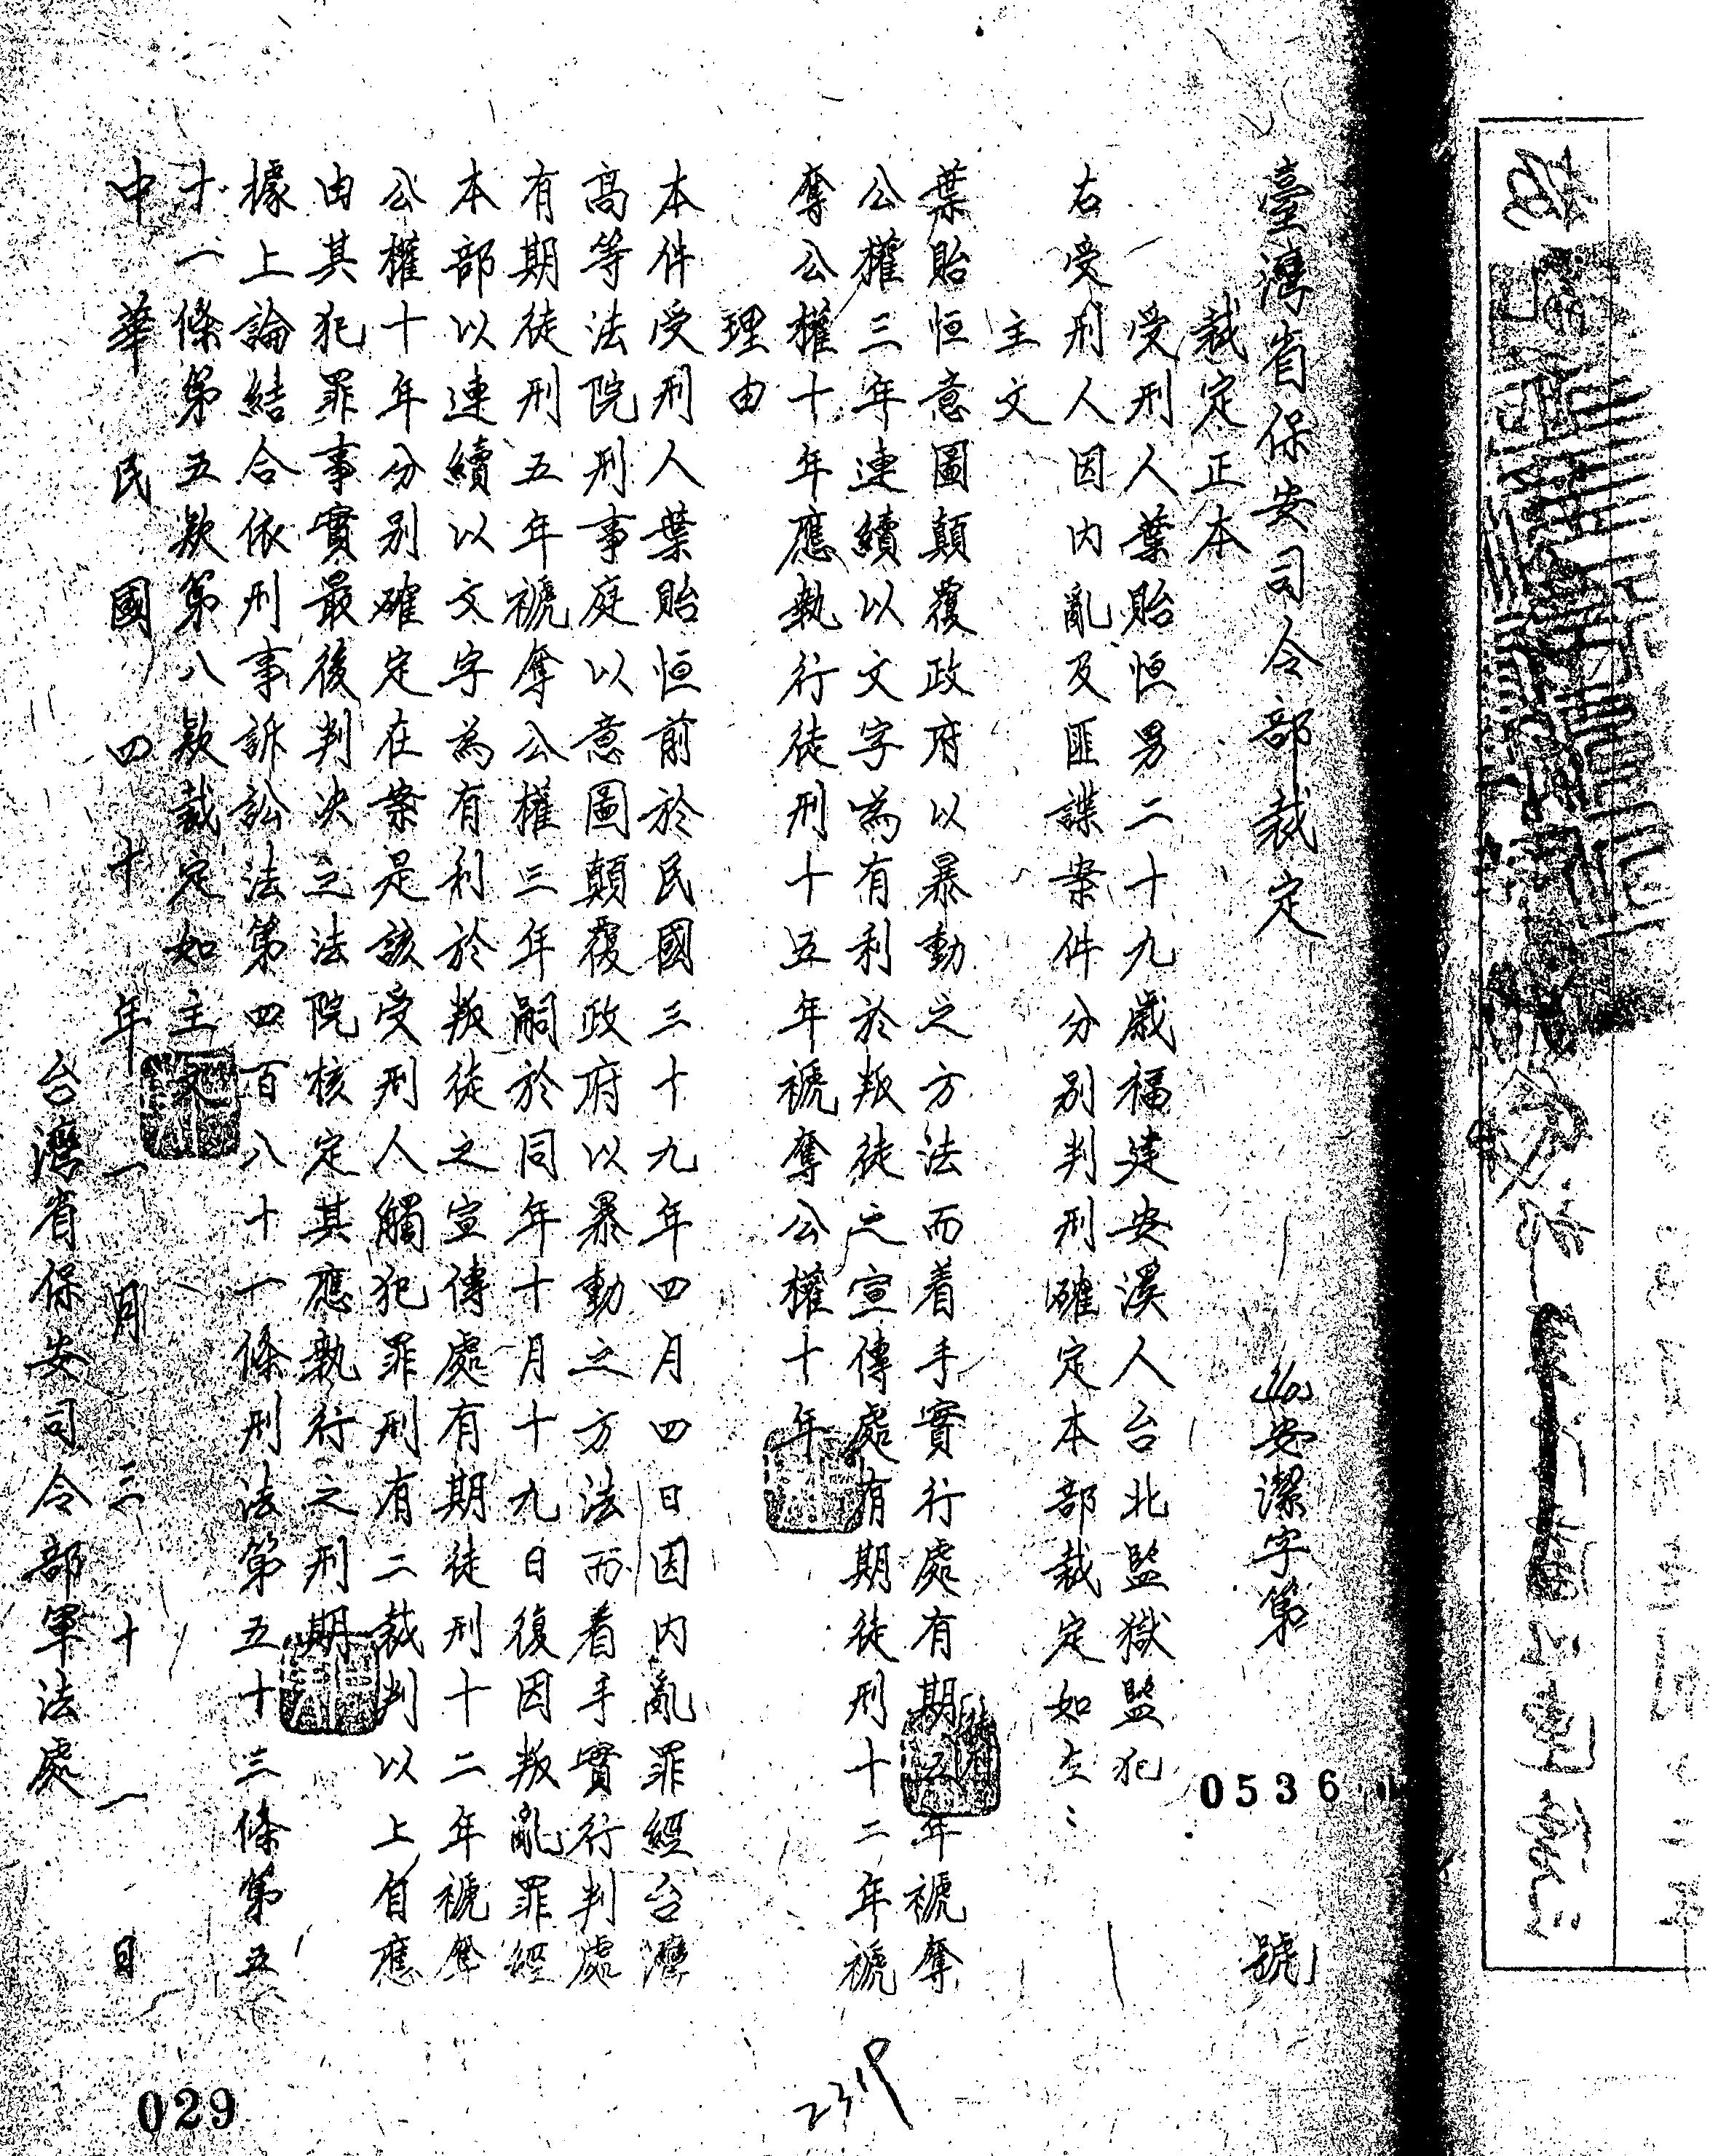 臺灣省保安司令部裁定
安潔字第0536號
裁定正本
受刑人葉貽恒男二十九歲福建安溪人台北監獄監犯
右受刑人因內亂及匪諜案件分別判刑確定本部裁定如左：
主文
葉貽恒意圖顛覆政府以暴動之方法而着手實行處有期徒刑五年褫奪
公權三年連續以文字為有利於叛徒之宣傳處有期徒刑十二年褫
奪公權十年應執行徒刑十五年褫奪公權十年
理由
本件受刑人葉貽恒前於民國三十九年四月四日因內亂罪經台灣
高等法院刑事庭以意圖顛覆政府以暴動之方法而着手實行判處
有期徒刑五年褫奪公權三年嗣於同年十月十九日復因叛亂罪經
本部以連續以文字為有利於叛徒之宣傳處有期徒刑十二年褫奪
公權十年分別確定在案是該受刑人觸犯罪刑有二裁判以上自應
由其犯罪事實最後判决之法院核定其應執行之刑期
據上論結合依刑事訴訟法第四百八十一條刑法第五十三條第五
十一條第五款第八款裁定如主文
中華民國四十年一月三十一日
台灣省保安司令部軍法處
2319
029